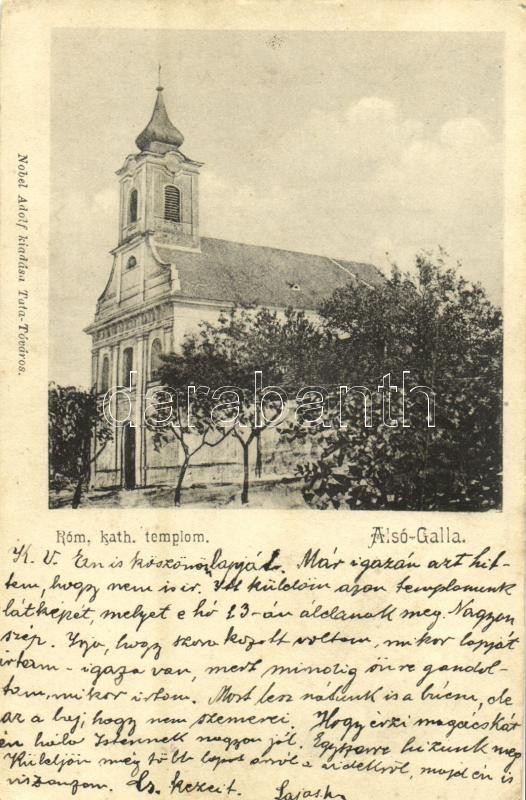 Nobel Adolf kiadása Tata-Tóváros.
darabanth
Róm. kath. templom.
Alsó-Galla.
K. V. Én is köszönöm lapját. Már igazán azt hit-
tem, hogy nem is ir. küldöm azon templomunk
látképét, melyet e hó 23-án áldanak meg. Nagyon
szép. Irja, hogy szórakozott voltam, mikor lapját
irtam - igaza van, mert mindig önre gondol-
tam, mikor irtam. Most lesz nálunk is a búcsu, de
az a baj, hogy nem szemerei. Hogy érzi magácskát
én hála Istennek nagyon jól. Egyszerre hizunk meg
Küldjön még több lapot arról a vidékről, majd én is
viszonzom. Cs. kezeit. Lajos